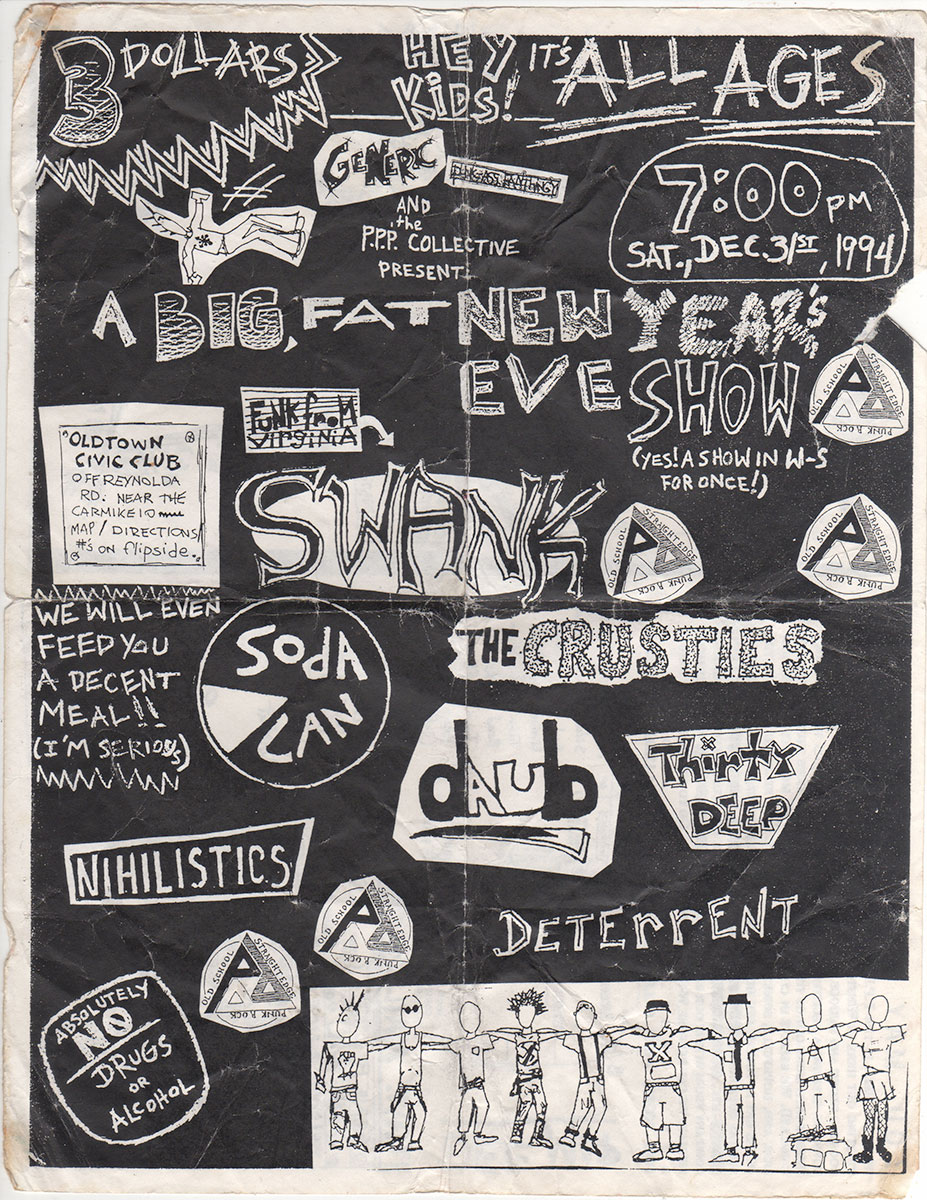 3 DOLLARS
HEY KIDS!
IT'S ALL AGES
GENERIC
AND the
P.P.P. COLLECTIVE
PRESENT...
7:00 PM
SAT., DEC. 31ST, 1994
A BIG, FAT NEW YEAR'S
EVE SHOW
(YES! A SHOW IN W-S
FOR ONCE!)
OLD SCHOOL
STRAIGHTEDGE
PUNK ROCK
FUNK from
VIRGINIA
SWANK
OLDTOWN
CIVIC CLUB
OFF REYNOLDA
RD. NEAR THE
CARMIKE 10
MAP / DIRECTIONS
#'s on flipside.
OLD SCHOOL
STRAIGHTEDGE
PUNK ROCK
OLD SCHOOL
STRAIGHTEDGE
PUNK ROCK
WE WILL EVEN
FEED YOU
A DECENT
MEAL!!
(I'M SERIOUS)
SODA
CAN
THE CRUSTIES
dAUb
Thirty
DEEP
NIHILISTICS
DETERRENT
OLD SCHOOL
STRAIGHTEDGE
PUNK ROCK
OLD SCHOOL
STRAIGHTEDGE
PUNK ROCK
ABSOLUTELY
NO
DRUGS
OR
ALCOHOL
X
A